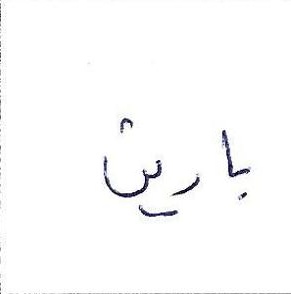 باريش